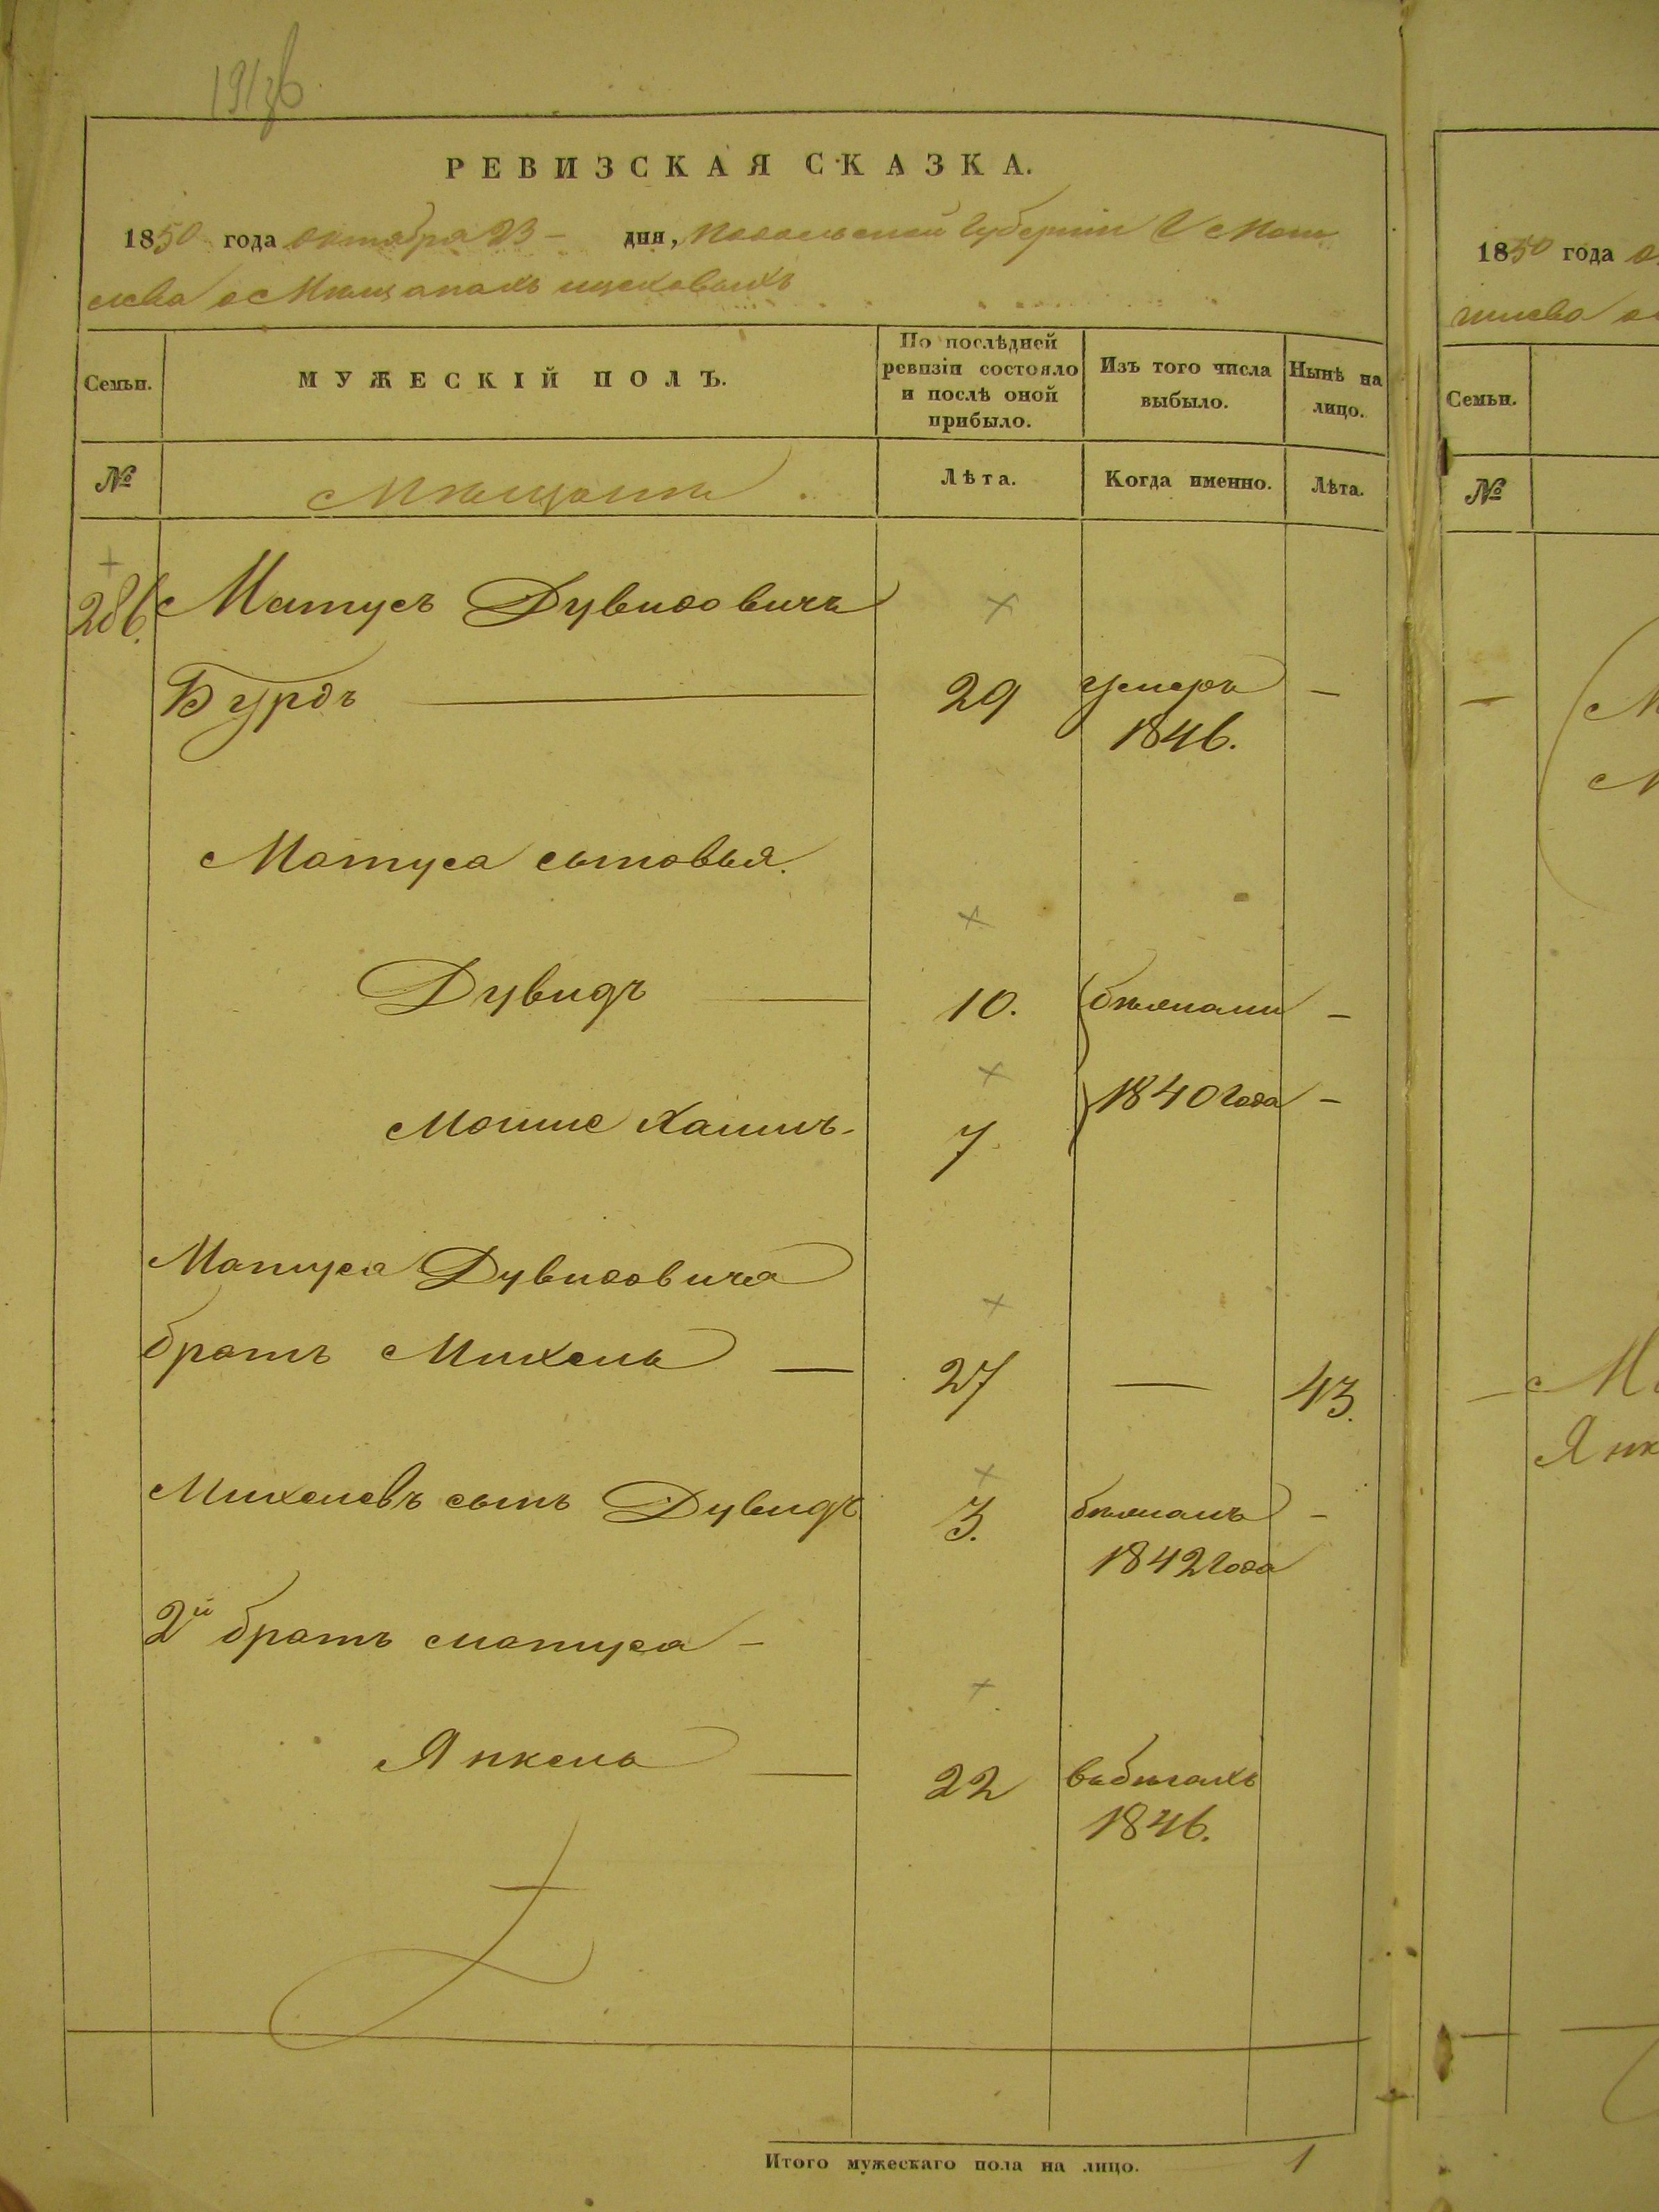 РЕВИЗСКАЯ СКАЗКА.
1850 года октября 23 – дня, Подольской Губернии Г Моги
лева о Мещанахъ
Семьи.
МУЖЕСКІЙ ПОЛЪ.
По послѣдней
ревизіи состояло
и послѣ оной
прибыло.
Изъ того числа
выбыло.
Нынѣ на
лицо.
№
Мѣщане.
Лѣта.
Когда именно.
Лѣта.
286.
Матусъ Дувидовичъ
Бурдъ — 29 умеръ –
1846.
Матуса сыновья.
Дувидъ — 10. –
1840 года –
Мошие Хаимъ - 7
Матуса Дувидовича
братъ Михель — 27 — 43.
Михелевъ сынъ Дувидъ 3. –
1842 года
2й братъ матуса –
Янкель — 22 въ бѣгахъ
1846.
Итого мужескаго пола на лицо. 1
1850 года
Семьи.
№
Янк